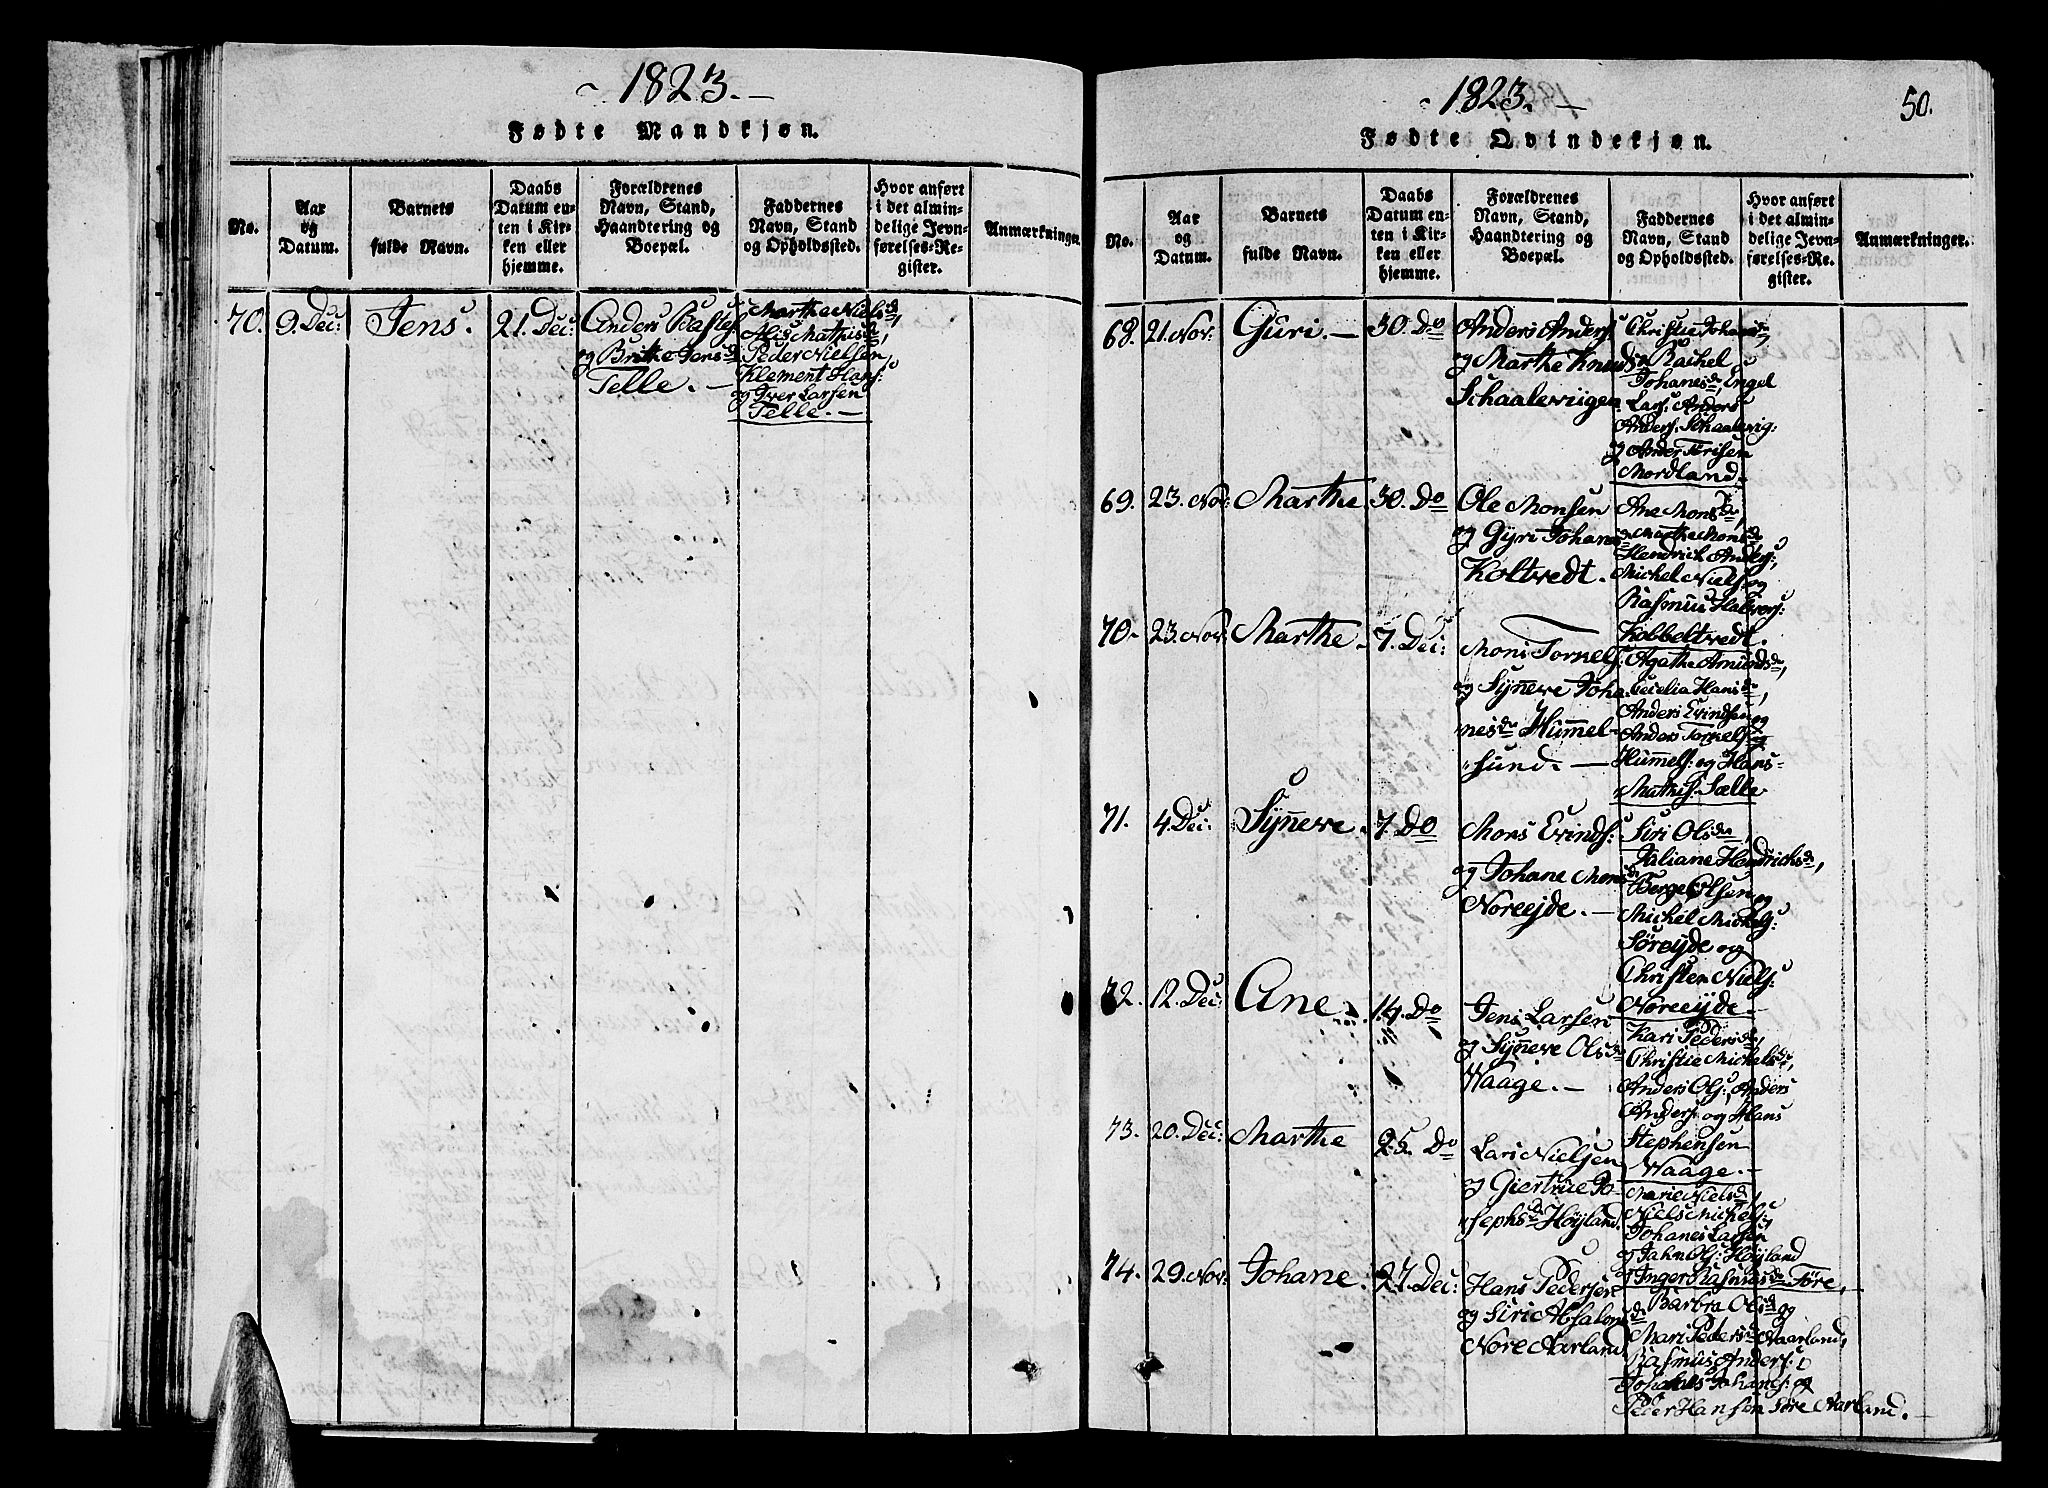 1823.
Fødte Mandkjøn.
No.
Aar
og
Datum.
Barnets
fulde Navn.
Daabs
Datum en-
ten i Kir-
ken eller
hjemme.
Forældrenes
Navn, Stand,
Haandtering og
Boepæl.
Faddernes
Navn, Stand
og Opholdssted.
Hvor anført
i det almin-
delige Jevn-
førelses-Re-
gister.
Anmærkninger.
70.
9. Dec:
Jens.
21. Dec:
Anders
og Brithe Jensd
Telle.
Marthe Nielsd,
Mathisd,
Peder Nielsen,
Klement Hans:
og Iver Larsen
Telle.
1823.
50.
Fødte Qvindekjøn.
No.
Aar
og
Datum.
Barnets
fulde Navn.
Daabs
Datum en-
ten i Kir-
ken eller
hjemme.
Forældrenes
Navn, Stand,
Haandtering og
Boepæl.
Faddernes
Navn, Stand
og Opholdssted.
Hvor anført
i det almin-
delige Jevn-
førelses-Re-
gister.
Anmærkninger.
68.
21. Nov:
Guri.
30. Do
Anders Anders:
og Marthe Knudsd
Schaalevigen.
Christie Johansd,
Rachel
Johanesd Engel
Lars: Anders
Anders: Schaalevig:
og Ander
Mordland.
69.
23. Nov:
Marthe.
30. Do
Ole Monsen
og Gyri Johansd
Koltvedt.
Ane Monsd,
Marthe Monsd
Hendrich Anders:,
Michel Niels: og
Rasmus Halvors:
Kolbeltvedt.
70.
23. Nov:
Marthe.
7. Dec:
Mons Torkels:
og Syneve Joha-
nesd Humel-
sund.
Agathe Amundsd,
Cecelia Hansd,
Anders Evindsen og
Anders Torkels:
Humels: og Hans
Mathis: Sælle
71.
4. Dec:
Syneve.
7. Do
Mons Evinds:
og Johane Monsd
Noreejde.
Siri Olsd,
Juliane Hendrichsd,
Berge Olsen og
Michel Michels:
Søreijde og
Christen Niels:
Noreejde.
72.
12. Dec:
Ane.
14. Do
Jens Larsen
og Syneve Olsd
Waage.
Kari Pedersd,
Christie Michelsd,
Anders Ols:, Anders
Anders: og Hans
Stephensen
Waage.
73.
20. Dec:
Marthe
25. Do
Lars Nielsen
og Giertrue Jo-
sephsd Höyland.
Marie Nielsd,
Niels Michels:,
Johanes Larsen
og Jahn Ols: Höyland
og Inger Rasmusd Töre,
74.
29. Nov:
Johane.
27. Dec:
Hans Pedersen
og Siri Absalonsd
Nore Aarland
Barbra Olsd og
Mari Pedersd Aarland,
Rasmus Anders:
Johanes Johans: og
Peder Hansen Söre Aarland.